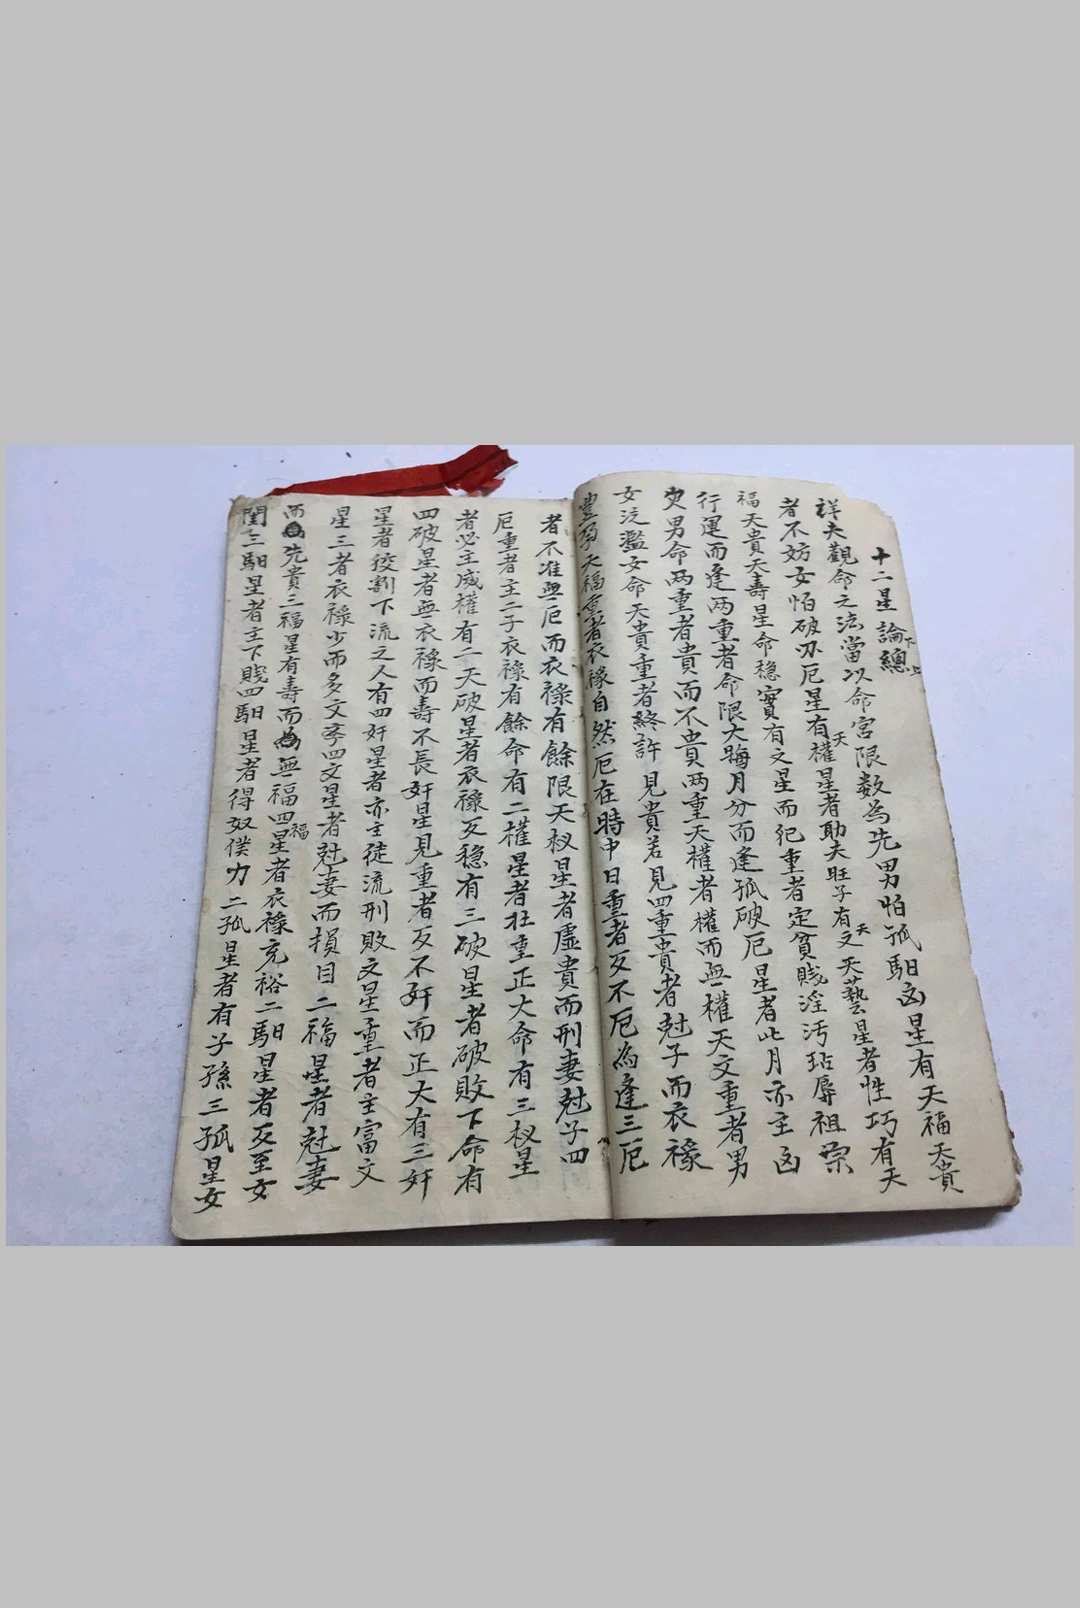 十二星論總下上
祥夫觀命之法當以命宮限数為先男怕孤馹囟星有天福天貴
者不妨女怕破刃厄星有天權星者助夫旺子有天文天藝星者性巧有天
福天貴天壽星命穩實有文星而犯重者定貧賤淫污玷辱祖宗
行運而逢两重者命限大晦月分而逢孤破厄星者此月亦主囟
男命两重者貴而不貴两重天權者權而無權天文重者男
女泛濫女命天貴重者終許見貴若見四重貴者尅子而衣祿
豊孕天福重者衣祿自然厄在時中日重者反不厄為逢三厄
者不准無厄而衣祿有餘限天杈星者虛貴而刑妻尅子四
厄重者主二子衣祿有餘命有二權星者壮重正大命有三杈星
者必主威權有二天破星者衣祿反穩有三破星者破敗下命有
四破星者無衣祿而壽不長奸星見重者反不奸而正大有三奸
星者狡割下流之人有四奸星者亦主徒流刑敗文星重者主富文
星三者衣祿少而多文孛四文星者尅妻而損目二福星者尅妻
而先貴三福星有壽而為無福四福星者衣祿充裕二馹星者反至女
閨三馹星者主下賤四馹星者得奴僕力二孤星者有子孫三孤星女